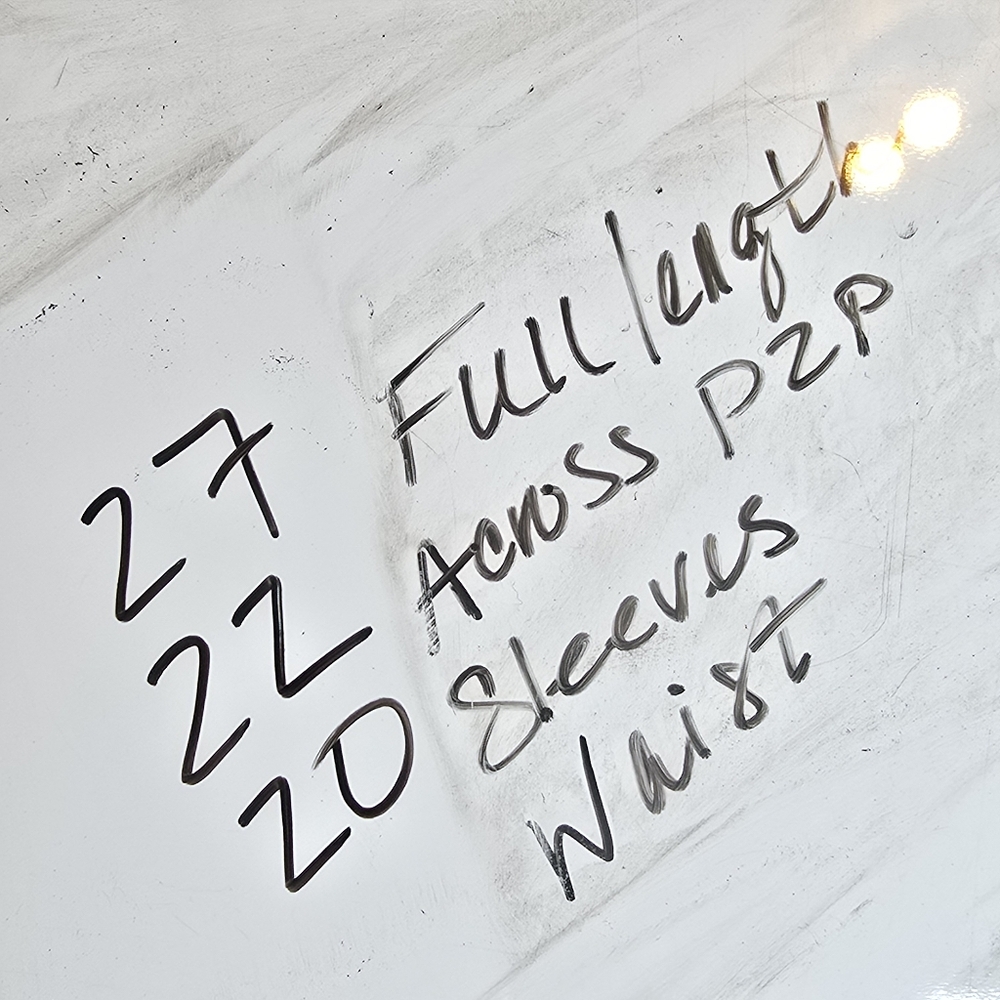 27 Full length
22 Across P2P
20 Sleeves
Waist